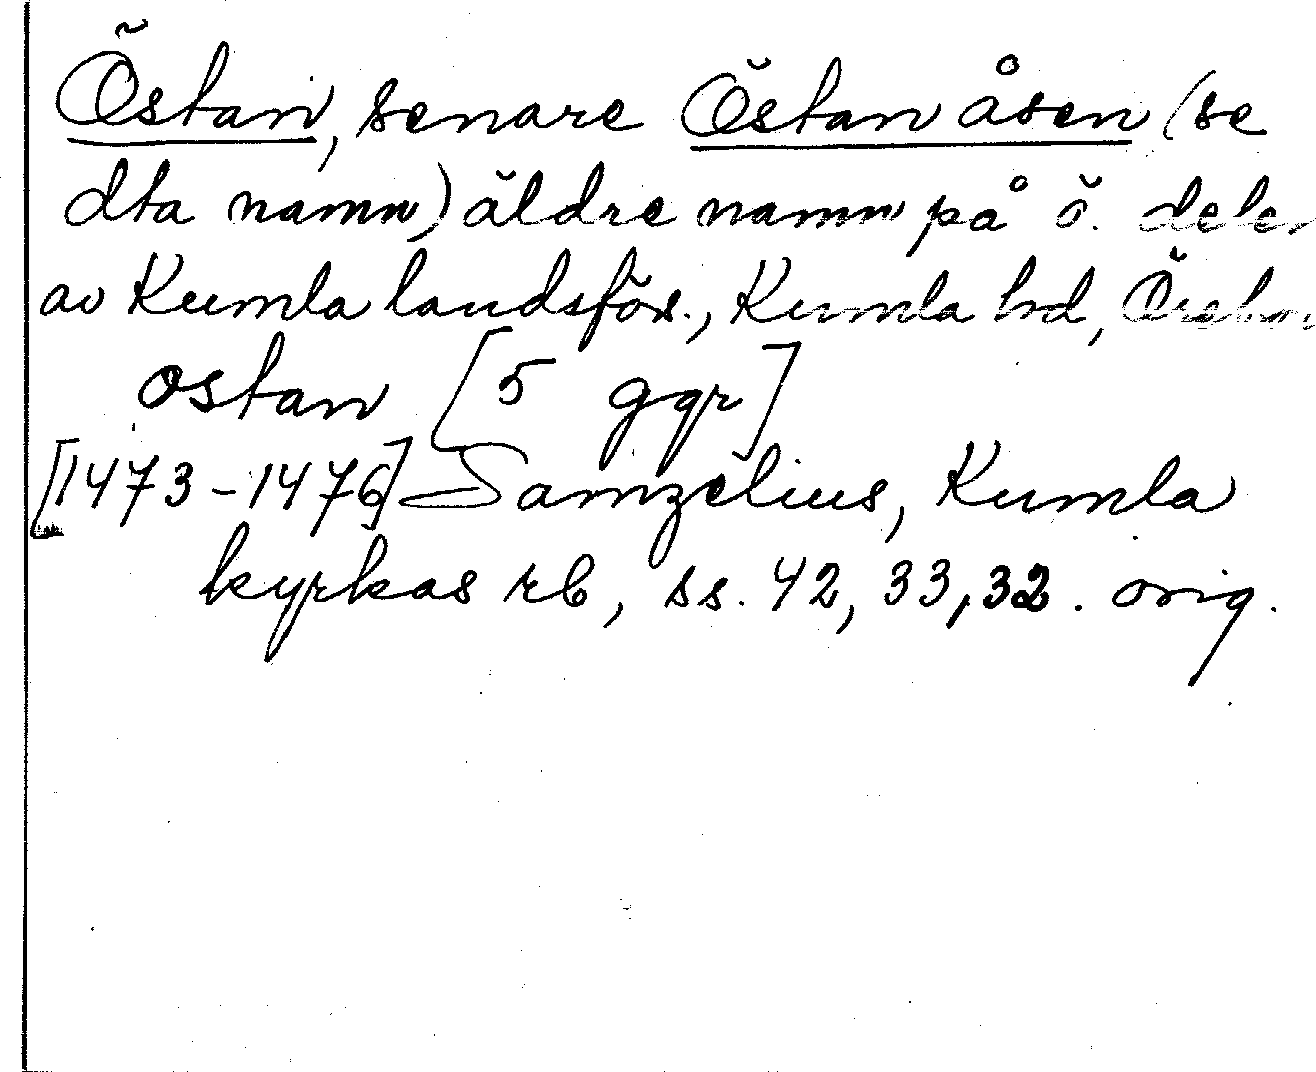 Östan, senare Östan åsen (se
dta namn) äldre namn på ö. delen
av Kumla landsförs., Kumla hd, Örebro
ostan [5 ggr]
[1473-1476] Samzelius, Kumla
kyrkas rb, ss. 42, 33, 32. orig.